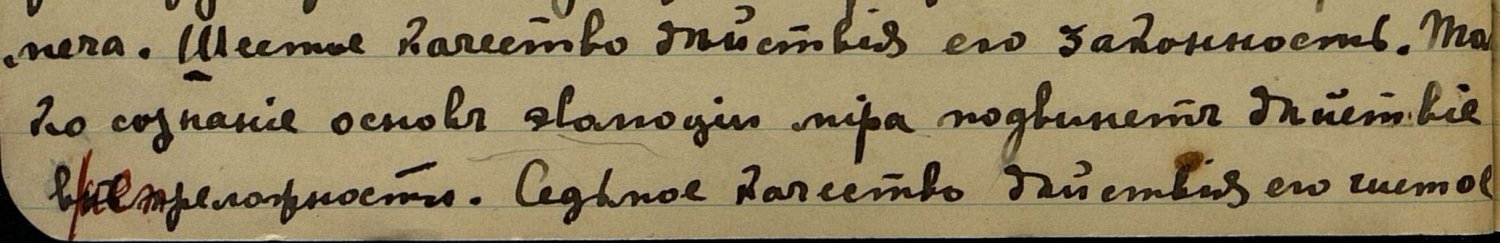 меча. Шестое качество дѣйствія его законность. То
ко сознаніе основъ эволюціи міра подвинетъ дѣйствіе
в непреложность. Седьмое качество дѣйствія его чистое